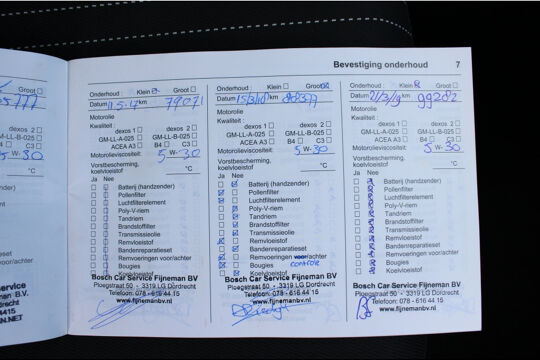 Bevestiging onderhoud 7
Onderhoud : Klein Groot
Datum 15-17 km 79071
Motorolie
Kwaliteit :
dexos 1 dexos 2
GM-LL-A-025 GM-LL-B-025
ACEA A3 B4 C3
Motorolieviscositeit: 5 W- 30
Vorstbescherming,
koelvloeistof °C
Ja Nee
Batterij (handzender)
Pollenfilter
Luchtfilterelement
Poly-V-riem
Tandriem
Brandstoffilter
Transmissieolie
Remvloeistof
Bandenreparatieset
Remvoeringen voor/achter
Bougies
Koelvloeistof
Bosch Car Service Fijneman BV
Ploegstraat 50 - 3319 LG Dordrecht
Telefoon: 078 - 616 44 15
www.fijnemanbv.nl
Onderhoud : Klein Groot
Datum 15/3/18 km 88377
Motorolie
Kwaliteit :
dexos 1 dexos 2
GM-LL-A-025 GM-LL-B-025
ACEA A3 B4 C3
Motorolieviscositeit: 5 W- 30
Vorstbescherming,
koelvloeistof °C
Ja Nee
Batterij (handzender)
Pollenfilter
Luchtfilterelement
Poly-V-riem
Tandriem
Brandstoffilter
Transmissieolie
Remvloeistof
Bandenreparatieset
Remvoeringen voor/achter
Bougies controle
Koelvloeistof
Bosch Car Service Fijneman BV
Ploegstraat 50 - 3319 LG Dordrecht
Telefoon: 078 - 616 44 15
www.fijnemanbv.nl
Onderhoud : Klein Groot
Datum 21/3/19 km 99282
Motorolie
Kwaliteit :
dexos 1 dexos 2
GM-LL-A-025 GM-LL-B-025
ACEA A3 B4 C3
Motorolieviscositeit: 5 W- 30
Vorstbescherming,
koelvloeistof °C
Ja Nee
Batterij (handzender)
Pollenfilter
Luchtfilterelement
Poly-V-riem
Tandriem
Brandstoffilter
Transmissieolie
Remvloeistof
Bandenreparatieset
Remvoeringen voor/achter
Bougies
Koelvloeistof
Bosch Car Service Fijneman BV
Ploegstraat 50 - 3319 LG Dordrecht
Telefoon: 078 - 616 44 15
www.fijnemanbv.nl